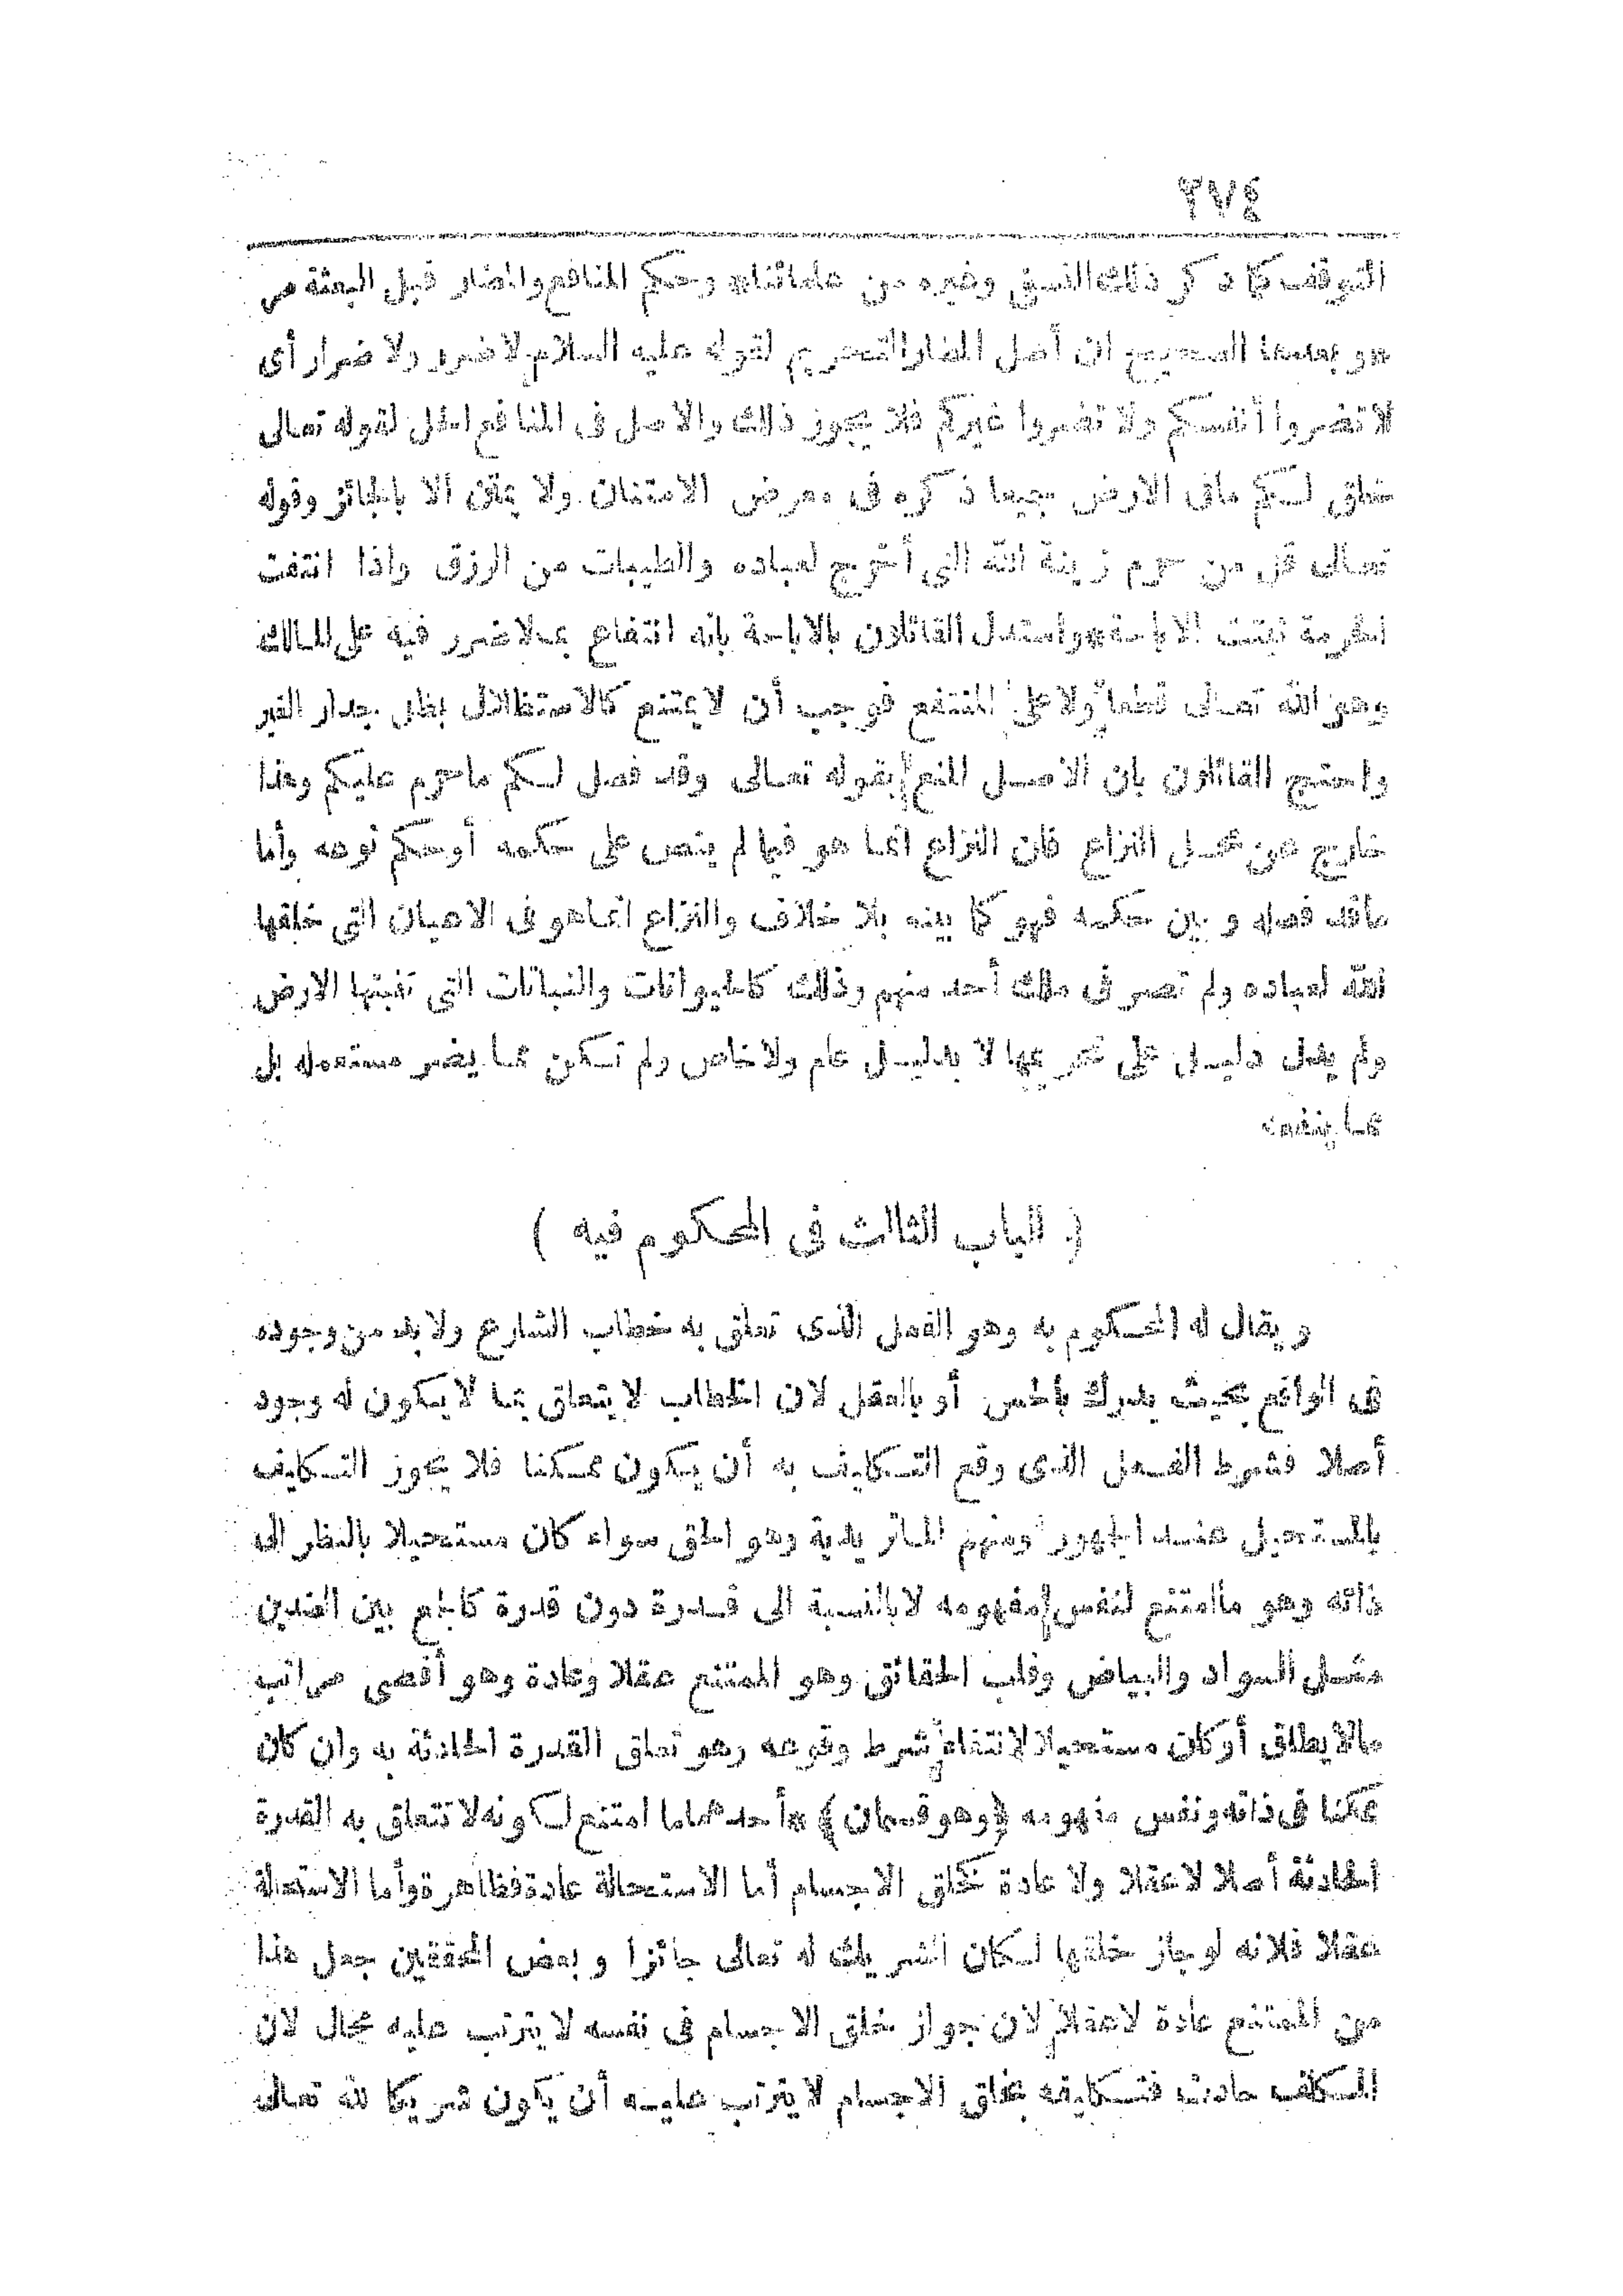 ٢٧٤
التوقف كما ذكر ذلك النسفي وغيره من علمائنا* وحكم المنافع والمضار قبل البعثة مر
هو بعدها الصحيح ان أصل المضار التحريم لقوله عليه السلام لا ضرر ولا ضرار أى
لا تضروا أنفسكم ولا تضروا غيركم فلا يجوز ذلك والاصل فى المنافع الحل لقوله تعالى
خلق لكم مافى الارض جميعا ذكره فى معرض الامتنان ولا يمتن الا بالجائز وقوله
تعالى قل من حرم زينة الله التي أخرج لعباده والطيبات من الرزق واذا انتفت
الحرمة ثبتت الاباحة*واستدل القائلون بالاباحة بأنه انتفاع بما لا ضرر فيه على المالك
وهو الله تعالى قطعا ولا على المنتفع فوجب أن لا يمتنع كالاستظلال بظل جدار الغير
واحتج القائلون بان الاصل المنع بقوله تعالى وقد فصل لكم ماحرم عليكم وهذا
خارج عن محل النزاع فان النزاع انما هو فيما لم ينص على حكمه أو حكم نوعه وأما
ماقد فصله وبين حكمه فهو كما بينه بلا خلاف والنزاع انما هو فى الاعيان التى خلقها
الله لعباده ولم تصر فى ملك أحد منهم وذلك كالحيوانات والنباتات التى تنبتها الارض
ولم يدل دليل على تحريمها لا بدليل عام ولا خاص ولم تكن مما يضر مستعمله بل
مما ينفعه
( الباب الثالث فى المحكوم فيه )
ويقال له المحكوم به وهو الفعل الذى تعلق به خطاب الشارع ولا بد من وجوده
فى الواقع بحيث يدرك بالحس أو بالعقل لان الخطاب لا يتعلق بما لا يكون له وجود
أصلا فشرط الفعل الذى وقع التكليف به أن يكون ممكنا فلا يجوز التكليف
بالمستحيل عند الجمهور ومنهم الماتريدية وهو الحق سواء كان مستحيلا بالنظر الى
ذاته وهو ما امتنع لنفس مفهومه لا بالنسبة الى قدرة دون قدرة كالجمع بين الضدين
مثل السواد والبياض وقلب الحقائق وهو الممتنع عقلا وعادة وهو أقصى مراتب
مالا يطاق أو كان مستحيلا لانتفاء شرط وقوعه وهو تعلق القدرة الحادثة به وان كان
ممكنا فى ذاته ونفس مفهومه (وهو قسمان) *أحدهما ما امتنع لكونه لا تتعلق به القدرة
الحادثة أصلا لا عقلا ولا عادة كخلق الاجسام أما الاستحالة عادة فظاهرة وأما الاستحالة
عقلا فلانه لو جاز خلقها لكان الشريك له تعالى جائزا وبعض المحققين جعل هذا
من الممتنع عادة لا عقلا لان جواز خلق الاجسام فى نفسه لا يترتب عليه محال لان
المكلف حادث فتكليفه بخلق الاجسام لا يترتب عليه أن يكون شريكا لله تعالى